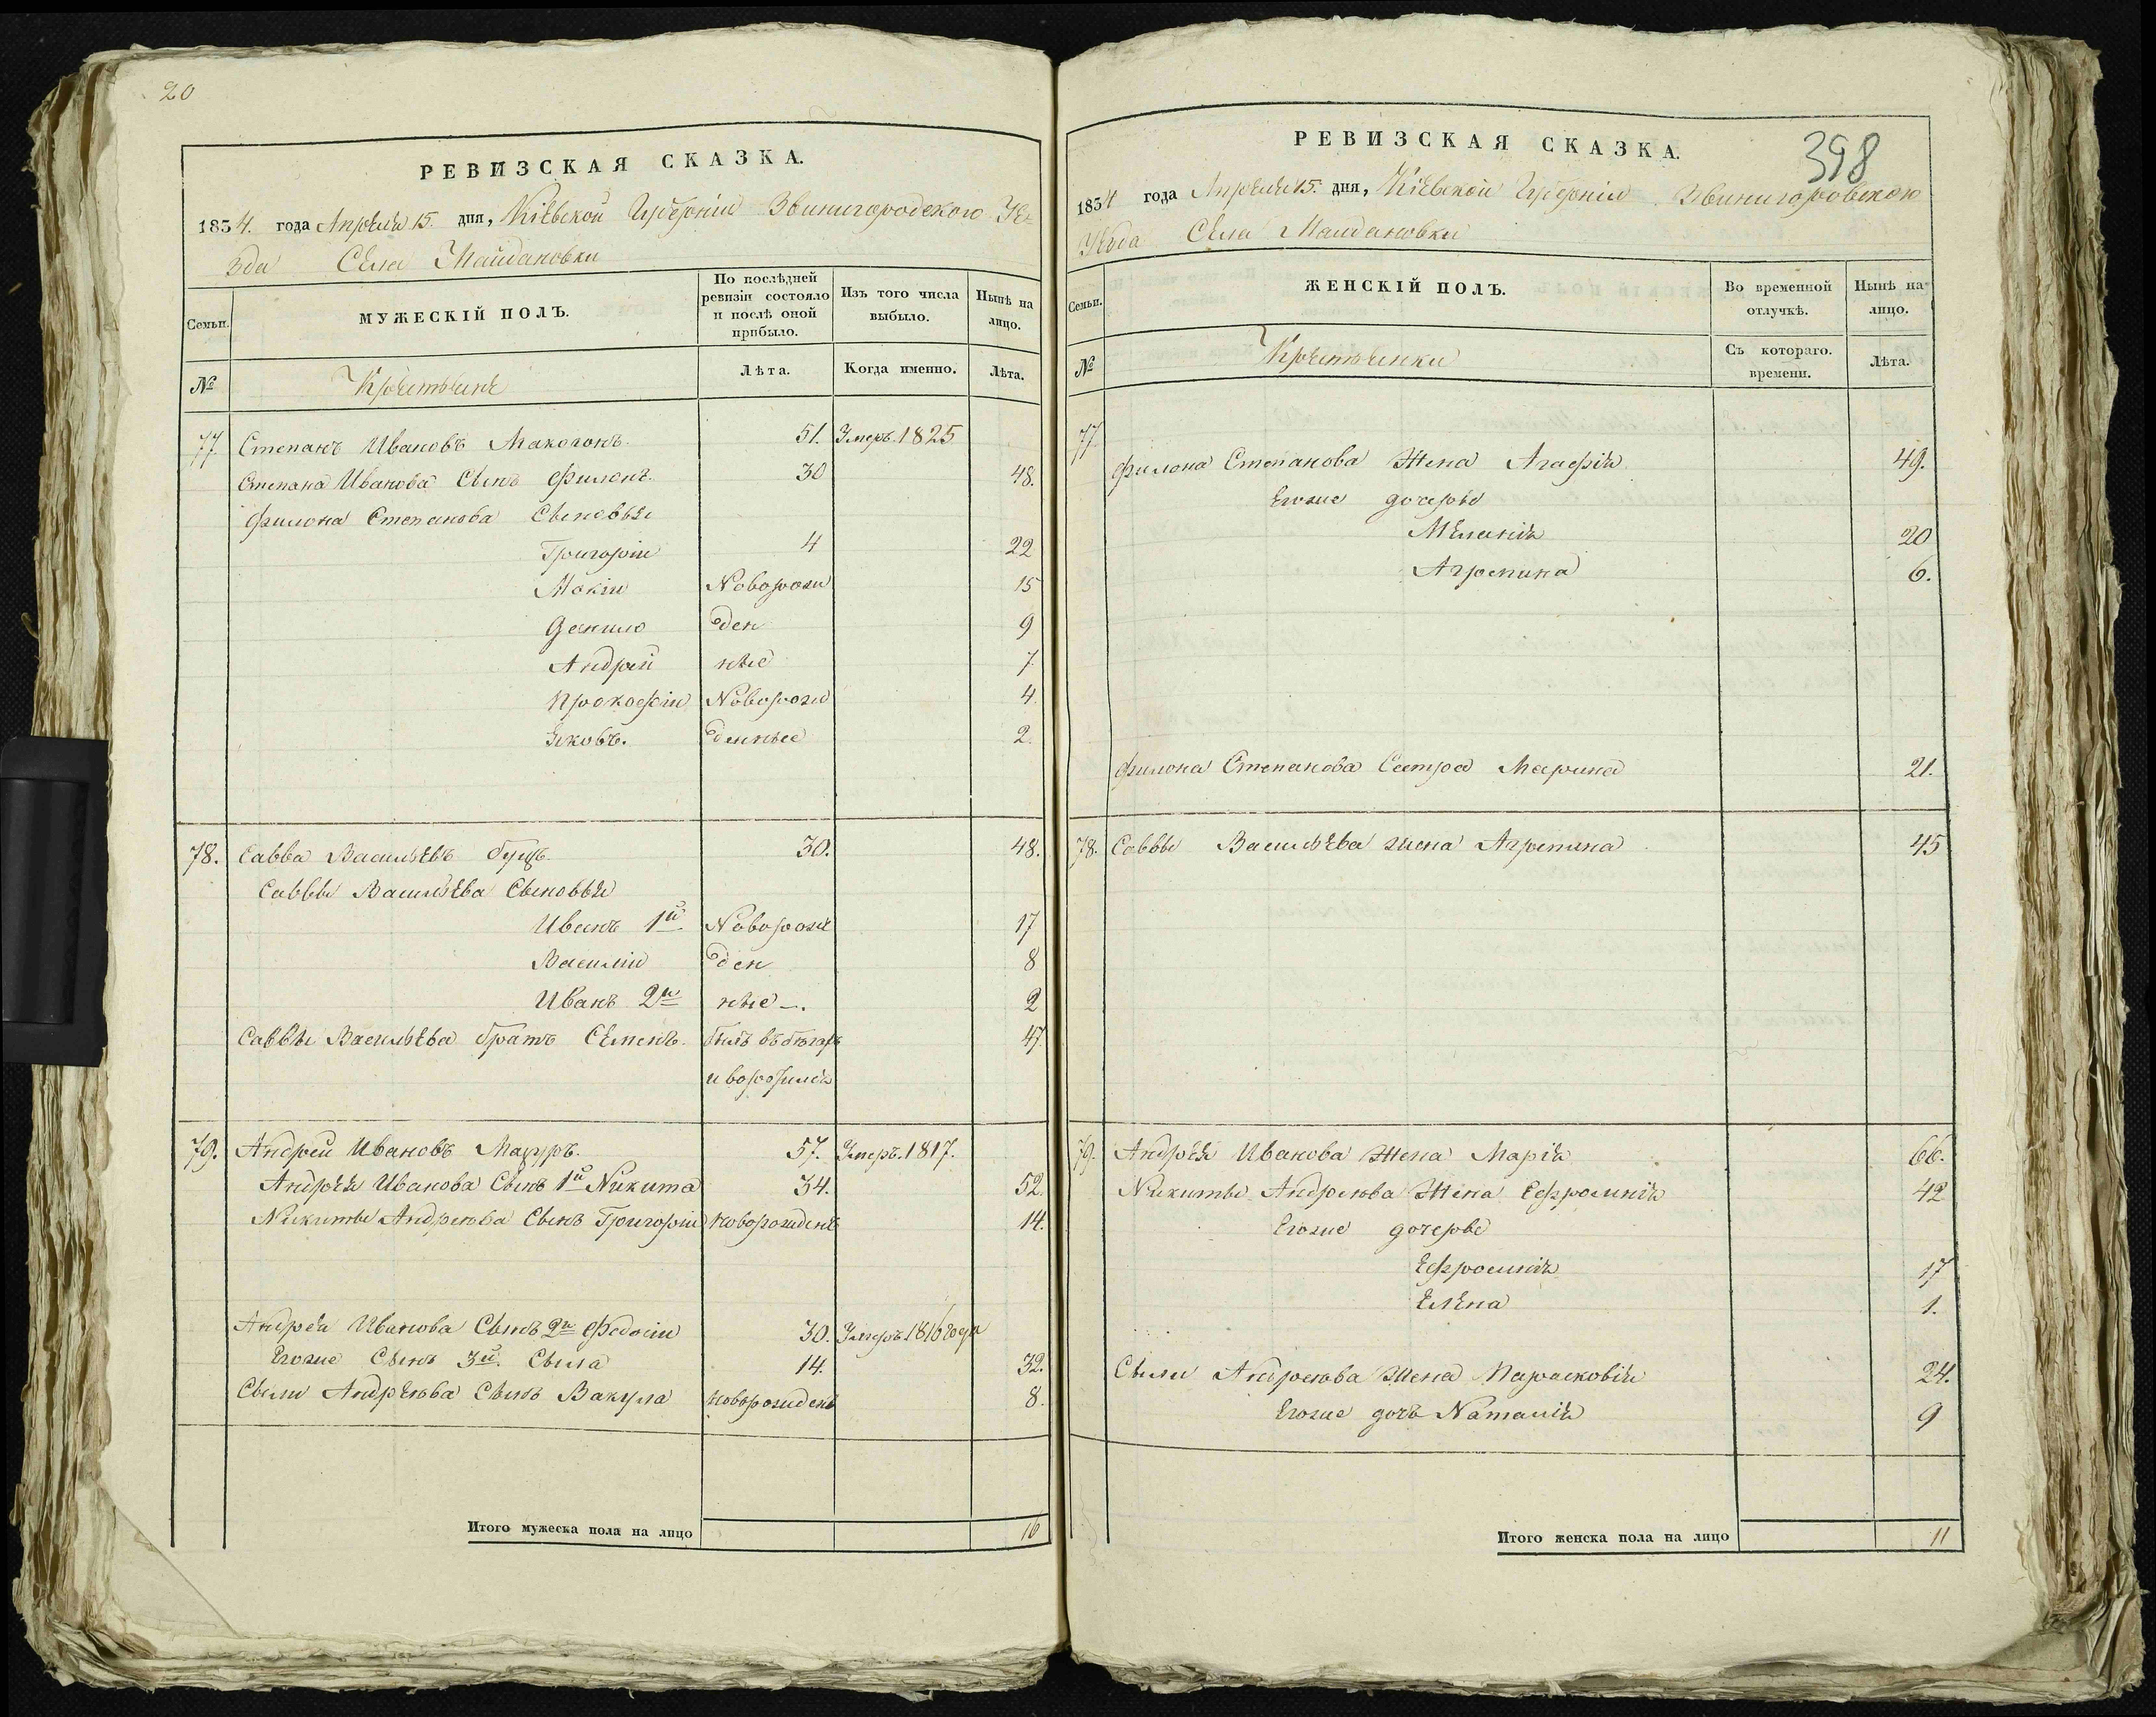 20
РЕВИЗСКАЯ СКАЗКА.
1834. года Апреля 15. дня, Кіевской Губерніи Звинигородского Уе-
зда Села Майдановки
Семьи.
МУЖЕСКІЙ ПОЛЪ.
По послѣдней ревизіи состояло и послѣ оной прибыло.
Изъ того числа выбыло.
Нынѣ на лицо.
№
Крестьяне
Лѣта.
Когда именно.
Лѣта.
77 Степанъ Ивановъ Макогонъ. 51. Умеръ. 1825
Степана Иванова Сынъ Филонъ. 30 48.
Филона Степанова Сыновья
Григорій 4 22
Мокій Новорож 15
Данило ден 9
Андрей ные 7.
Прокофій Новорож 4.
Яковъ. денные 2.
78. Савва Васильевъ 30. 48.
Саввы Васильева Сыновья
Иванъ 1й Новорож 17
Василій ден 8
Иванъ 2й ные -. 2
Саввы Васильева братъ Семенъ. былъ въ бегахъ 47
79. Андрей Ивановъ 57. Умеръ. 1817.
Андрея Иванова Сынъ 1й Никита 34. 52.
Никиты Андреева Сынъ Григорій новорожденъ 14.
Андрея Иванова Сынъ 2й Федосій 30. Умеръ 1816 года
Егоже Сынъ 3й. Сыла 14. 32.
Сылы Андреева Сынъ Вакула новорожденъ 8.
Итого мужеска пола на лицо 16
398
РЕВИЗСКАЯ СКАЗКА.
1834 года Апреля 15. дня, Кіевской Губерніи Звинигоровского
Уезда Села Майдановки
Семьи.
ЖЕНСКІЙ ПОЛЪ.
Во временной отлучкѣ.
Нынѣ на лицо.
№
Крестьянки
Съ котораго. времени.
Лѣта.
77.
Филона Степанова Жена Агафія 49.
Егоже дочеры
Меланія 20
Агрепина 6.
Филона Степанова Сестра Марина 21.
78. Саввы Васильева жена Агрепина 45
79. Андрея Иванова Жена Марія 66.
Никиты Андреева Жена Ефросинія 42
Егоже дочеры
Ефросинія 17
Елена 1.
Сылы Андреева Жена Парасковія 24.
Егоже дочъ Наталія 9
Итого женска пола на лицо 11